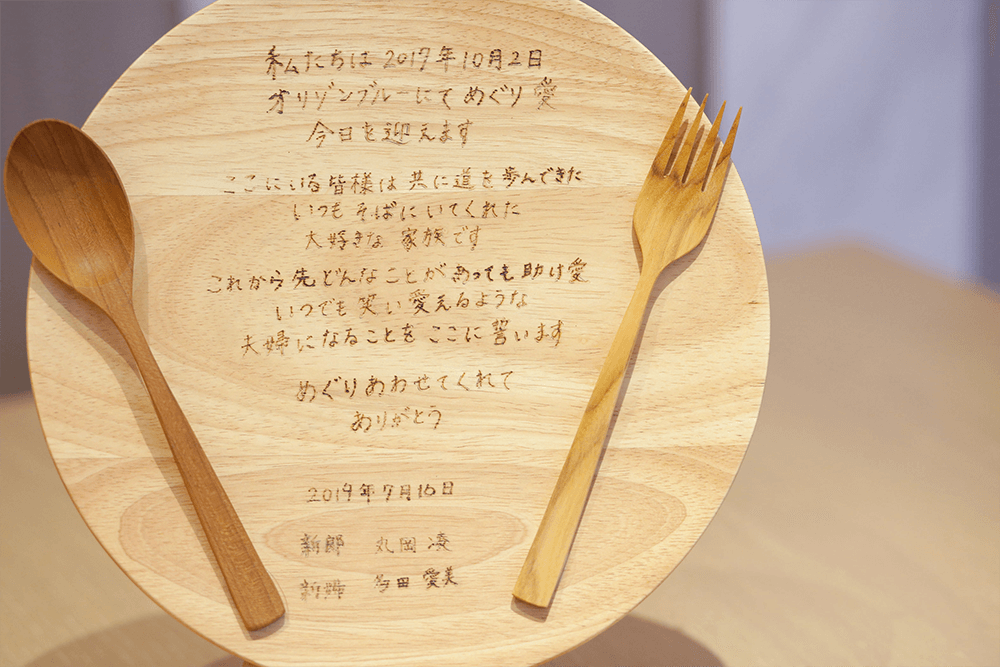 私たちは2017年10月2日
オリゾンブルーにてめぐり愛
今日を迎えます
ここにいる皆様は共に道を歩んできた
いつもそばにいてくれた
大好きな家族です
これから先どんなことがあっても助け愛
いつでも笑い愛えるような
夫婦になることをここに誓います
めぐりあわせてくれて
ありがとう
2019年7月16日
新郎 丸岡凌
新婦 多田愛美